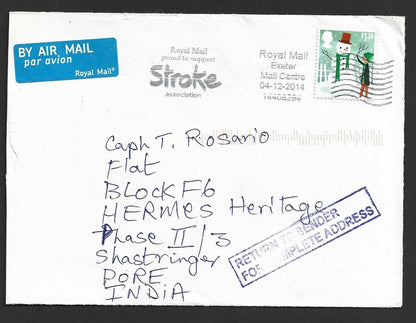 BY AIR MAIL
par avion
Royal Mail®
Royal Mail
proud to support
Stroke
association
Royal Mail
Exeter
Mail Centre
04-12-2014
Caph T. Rosario
Flat
BLOCK F6
HERMES Heritage
Phase II/3
Shastringer
PORE
INDIA
RETURN TO SENDER
FOR COMPLETE ADDRESS